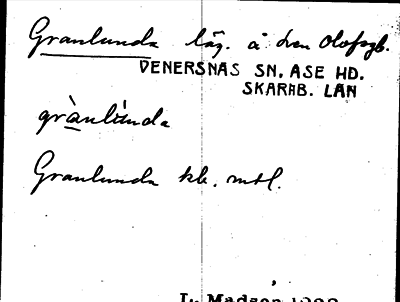 Granlunda läg. å den Olofsgb.
VENERSNÄS SN. ÅSE HD.
SKARAB. LÄN
grànlúnda
Granlunda kb. mtl.
L. Madsen